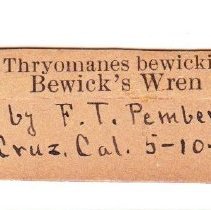 Thryomanes bewicki
Bewick's Wren
by F. T. Pember
Cruz. Cal. 5-10-